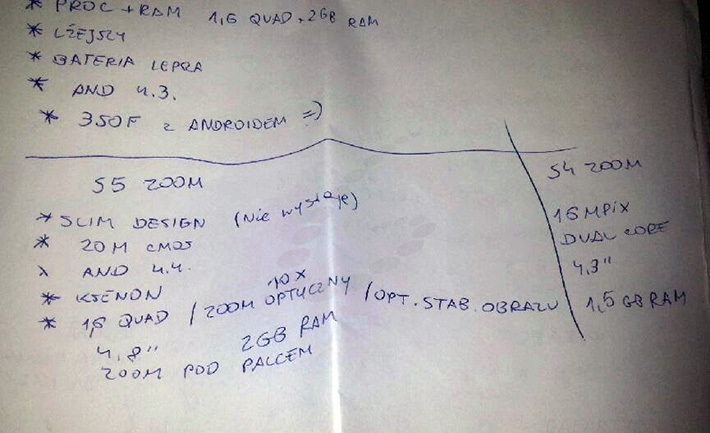 * PROC + RAM 1,6 QUAD + 2GB RAM
* LŻEJSZY
* BATERIA LEPSZA
* AND 4.3.
* 350F z ANDROIDEM =)
S5 ZOOM
* SLIM DESIGN (Nie wystaje)
* 20M CMOS
* AND 4.4.
* KSENON
* 1,8 QUAD / ZOOM OPTYCZNY 10x / OPT. STAB. OBRAZU
4,8" 2GB RAM
ZOOM POD PALCEM
S4 ZOOM
16 MPIX
DUAL CORE
4,3"
1,5 GB RAM